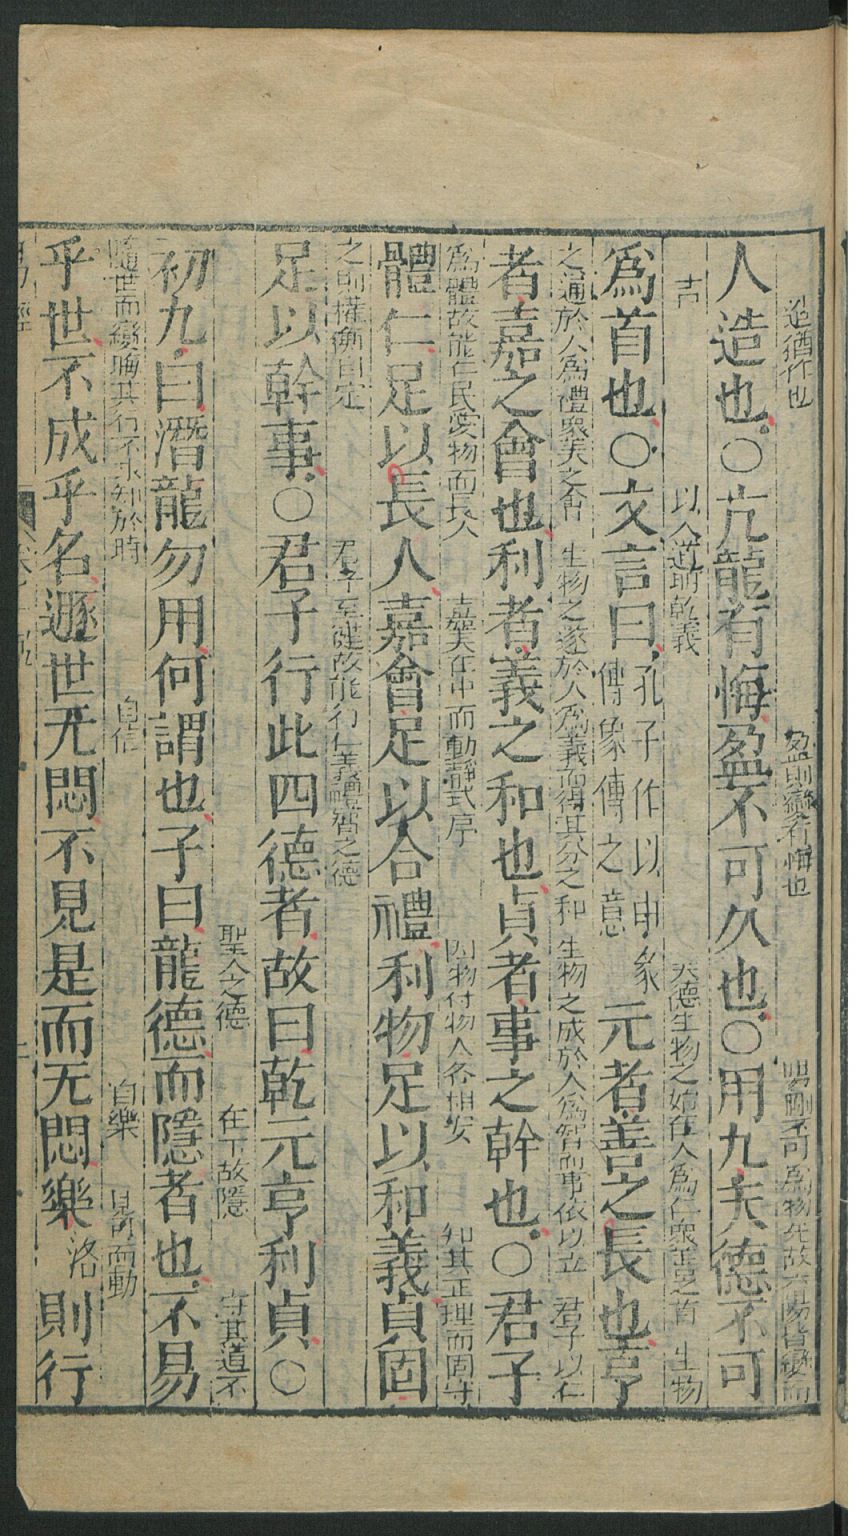 造猶作也 盈則變有悔也 陽剛不可爲物先故六陽皆變而
人造也○亢龍有悔盈不可久也○用九天德不可
吉 以人道明乾義 天德生物之始在人爲仁衆善之首 生物
爲首也○文言曰孔子作以申彖傳象傳之意元者善之長也亨
之通於人爲禮衆美之會 生物之遂於人爲義而得其分之和 生物之成於人爲智而事依以立 君子以仁
者嘉之會也利者義之和也貞者事之幹也○君子
爲體故能仁民愛物而長人 嘉美在中而動靜式序 因物付物人各相安 知其正理而固守
體仁足以長人嘉會足以合禮利物足以和義貞固
之則權衡自定 君子至健故能行仁義禮智之德
足以幹事○君子行此四德者故曰乾元亨利貞○
聖人之德 在下故隱 守其道不
初九曰潛龍勿用何謂也子曰龍德而隱者也不易
隨世而變晦其行不求知於時 自信 自樂 見可而動
乎世不成乎名遯世无悶不見是而无悶樂洛則行
易經